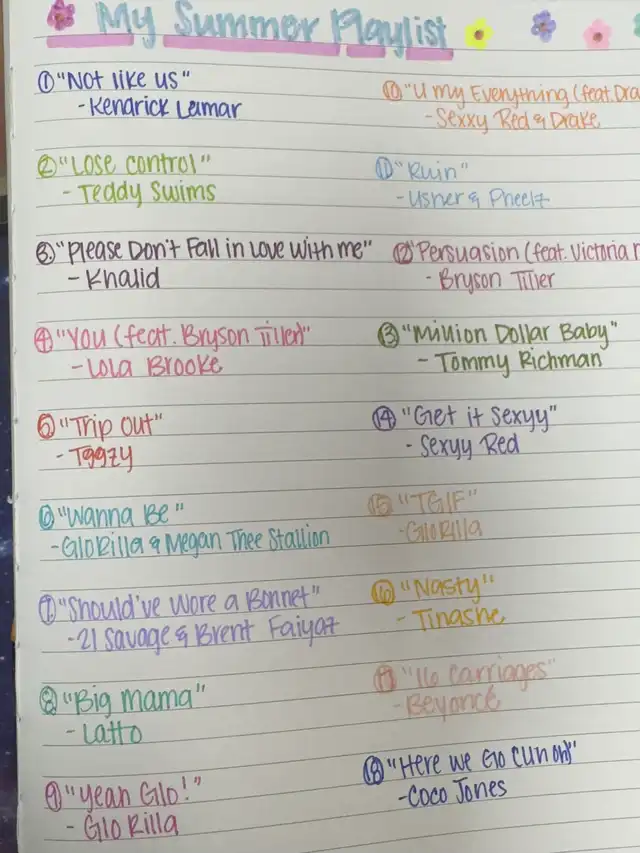 My Summer Playlist
① "Not like us"
- Kendrick Lamar
② "Lose control"
- Teddy Swims
③. "Please Don't Fall in Love With me"
- Khalid
④ "You (feat. Bryson Tiller)"
- Lola Brooke
⑤ "Trip out"
- Tggzy
⑥ "Wanna Be"
- GloRilla & Megan Thee Stallion
⑦ "Should've Wore a Bonnet"
- 21 Savage & Brent Faiyaz
⑧ "Big Mama"
- Latto
⑨ "Yeah Glo!"
- Glo Rilla
⑩ "U my Everything (feat. Dra
- Sexxy Red & Drake
⑪ "Ruin"
- Usher & Pheelz
⑫ "Persuasion (feat. Victoria
- Bryson Tiller
⑬ "Million Dollar Baby"
- Tommy Richman
⑭ "Get it Sexyy"
- Sexyy Red
⑮ "TGIF"
- GloRilla
⑯ "Nasty"
- Tinashe
⑰ "16 Carriages"
- Beyoncé
⑱ "Here we Go (Uh oh)"
- Coco Jones